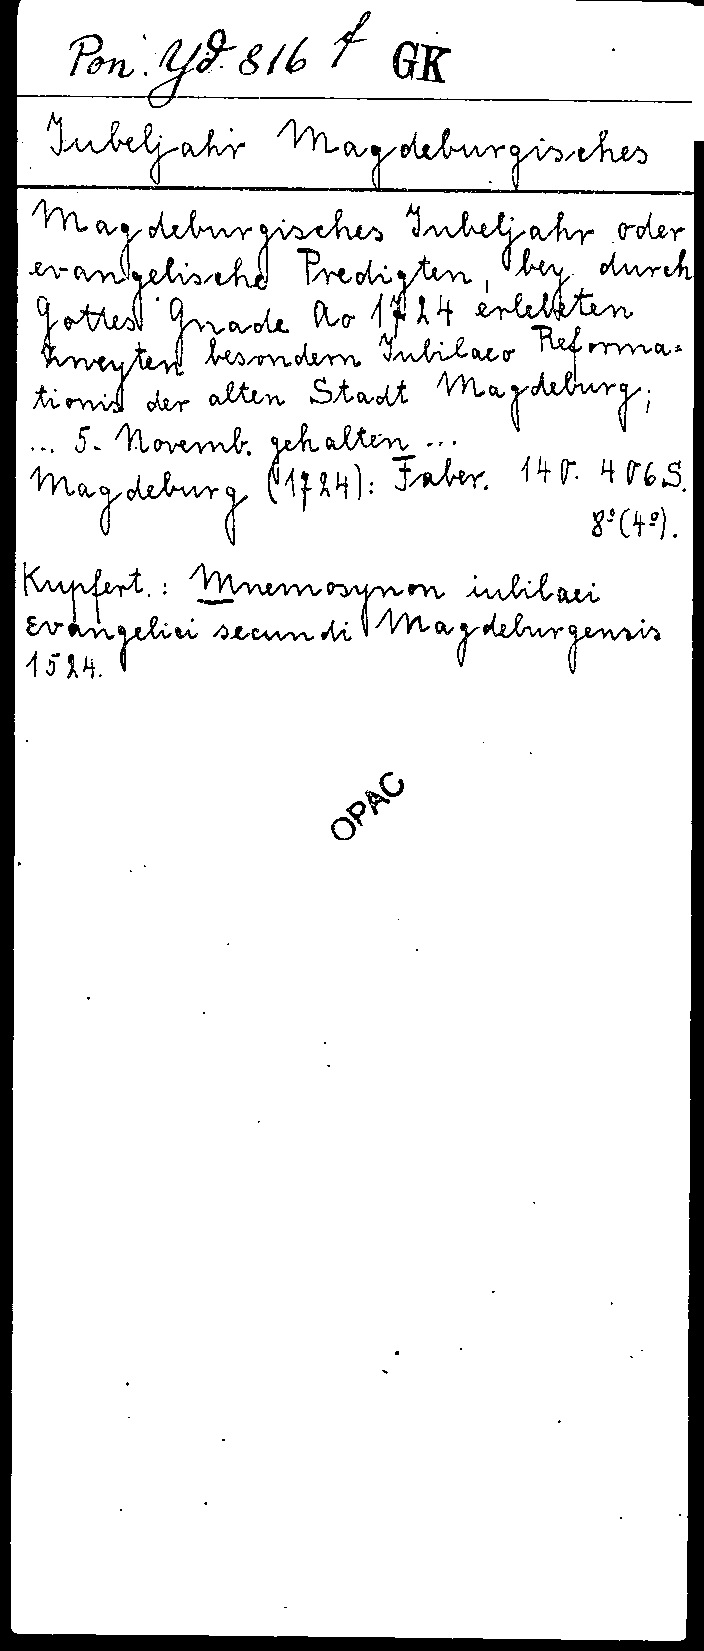 Pon. Yd. 816 f GK
Jubeljahr Magdeburgisches
Magdeburgisches Jubeljahr oder
evangelische Predigten, bey durch
Gottes Gnade Ao 1724 erlebeten
zweyten besondern Jubilaeo Reforma=
tionis der alten Stadt Magdeburg;
... 5. Novemb. gehalten ...
Magdeburg (1724): Faber. 140. 406 S.
8º(4º).
Kupfert.: Mnemosynon iubilaei
Evangelici secundi Magdeburgensis
1524.
OPAC